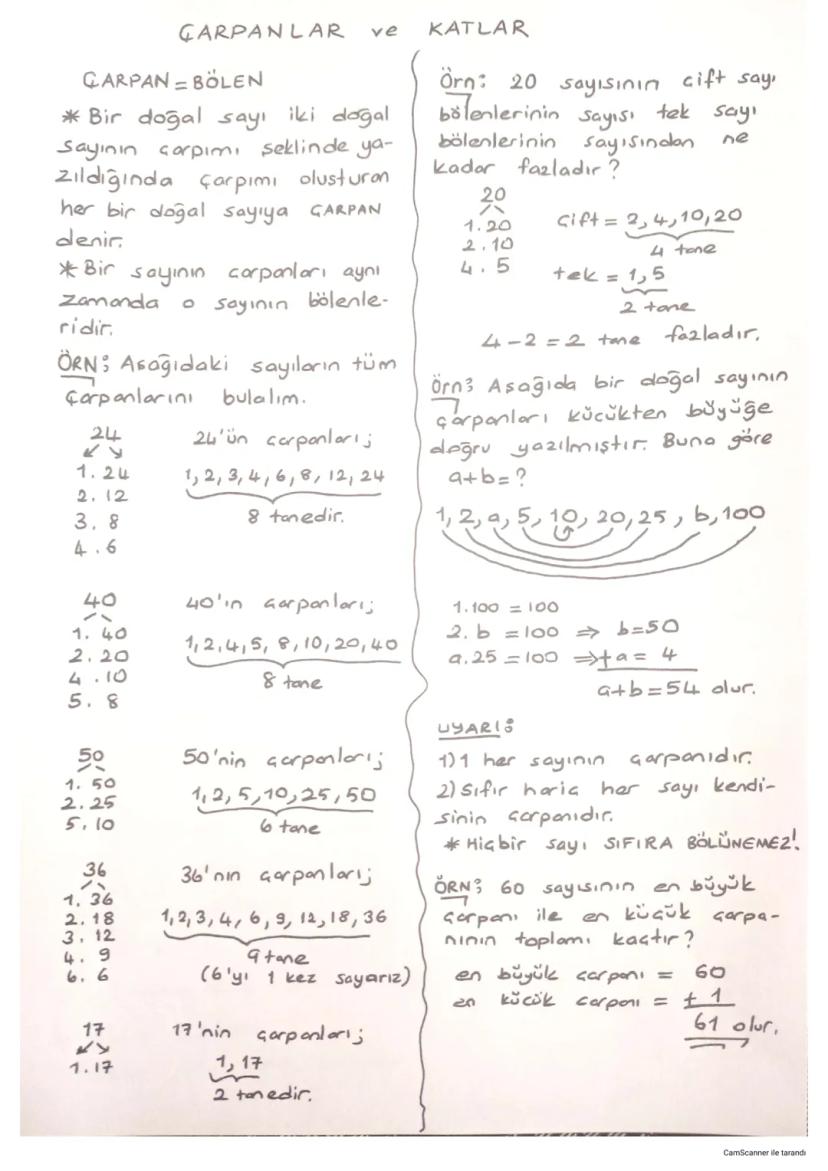 ÇARPANLAR ve KATLAR
ÇARPAN = BÖLEN
* Bir doğal sayı iki doğal
sayının çarpımı şeklinde ya-
zıldığında çarpımı oluşturan
her bir doğal sayıya ÇARPAN
denir.
* Bir sayının çarpanları aynı
zamanda o sayının bölenle-
ridir.
ÖRN: Aşağıdaki sayıların tüm
çarpanlarını bulalım.
24
1. 24
2. 12
3. 8
4. 6
24'ün çarpanları;
1, 2, 3, 4, 6, 8, 12, 24
8 tanedir.
40
1. 40
2. 20
4. 10
5. 8
40'ın çarpanları;
1, 2, 4, 5, 8, 10, 20, 40
8 tane
50
1. 50
2. 25
5. 10
50'nin çarpanları;
1, 2, 5, 10, 25, 50
6 tane
36
1. 36
2. 18
3. 12
4. 9
6. 6
36'nın çarpanları;
1, 2, 3, 4, 6, 9, 12, 18, 36
9 tane
(6'yı 1 kez sayarız)
17
1. 17
17'nin çarpanları;
1, 17
2 tanedir.
Örn: 20 sayısının çift sayı
bölenlerinin sayısı tek sayı
bölenlerinin sayısından ne
kadar fazladır?
20
1. 20
2. 10
4. 5
çift = 2, 4, 10, 20
4 tane
tek = 1, 5
2 tane
4 - 2 = 2 tane fazladır.
Örn: Aşağıda bir doğal sayının
çarpanları küçükten büyüğe
doğru yazılmıştır. Buna göre
a+b=?
1, 2, a, 5, 10, 20, 25, b, 100
1. 100 = 100
2. b = 100 ⇒ b=50
a. 25 = 100 ⇒ + a = 4
a+b=54 olur.
UYARI:
1) 1 her sayının çarpanıdır.
2) Sıfır hariç her sayı kendi-
sinin çarpanıdır.
* Hiçbir sayı SIFIRA BÖLÜNEMEZ!
ÖRN: 60 sayısının en büyük
çarpanı ile en küçük çarpa-
nının toplamı kaçtır?
en büyük çarpanı = 60
en küçük çarpanı = + 1
61 olur.
CamScanner ile tarandı